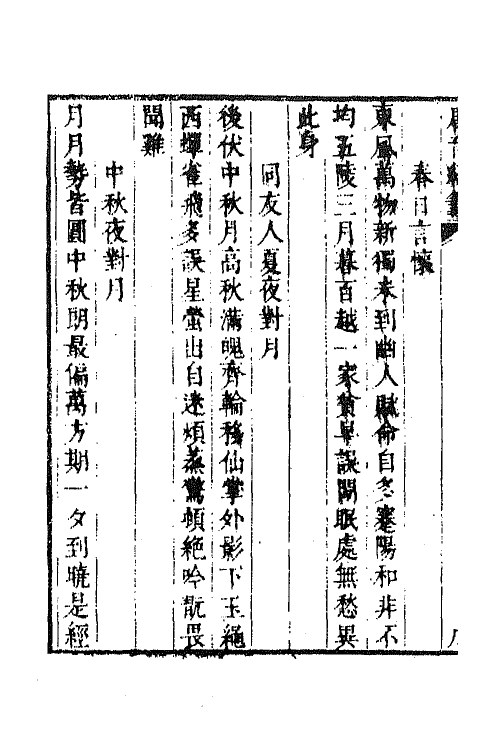 春日言懷
東風萬物新獨未到幽人賦命自多蹇陽和非不
均五陵三月暮百越一家貧早誤閑眠處無愁異
此身
同友人夏夜對月
後伏中秋月高秋滿魄齊輪移仙掌外影下玉繩
西蟬雀飛多誤星螢出自迷煩蒸驚頓絶吟翫畏
聞雞
中秋夜對月
月月勢皆圓中秋朗最偏萬方期一夕到曉是經